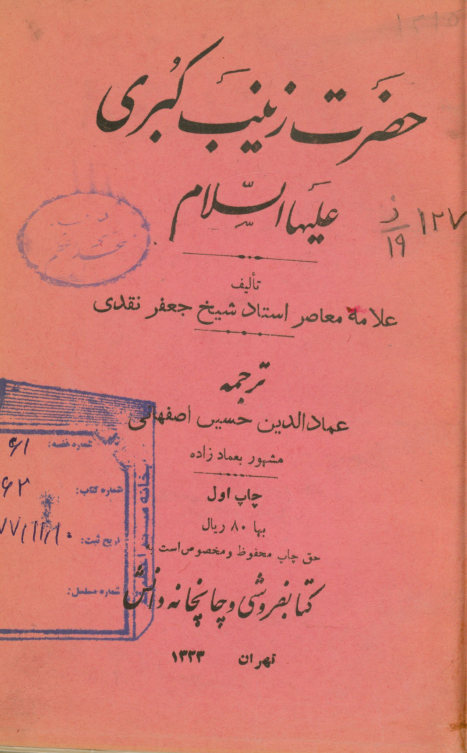 حضرت زینب کبری
علیها السلام
ز
۱۲۷
۱۹
تألیف
علامه معاصر استاد شیخ جعفر نقدی
ترجمه
عمادالدین حسین اصفهانی
مشهور بعمادزاده
چاپ اول
بها ۸۰ ریال
حق چاپ محفوظ و مخصوص است به
کتابفروشی و چاپخانه دانش
تهران ۱۳۲۳
شماره قفسه:
شماره کتاب:
تاریخ ثبت:
شماره مسلسل: